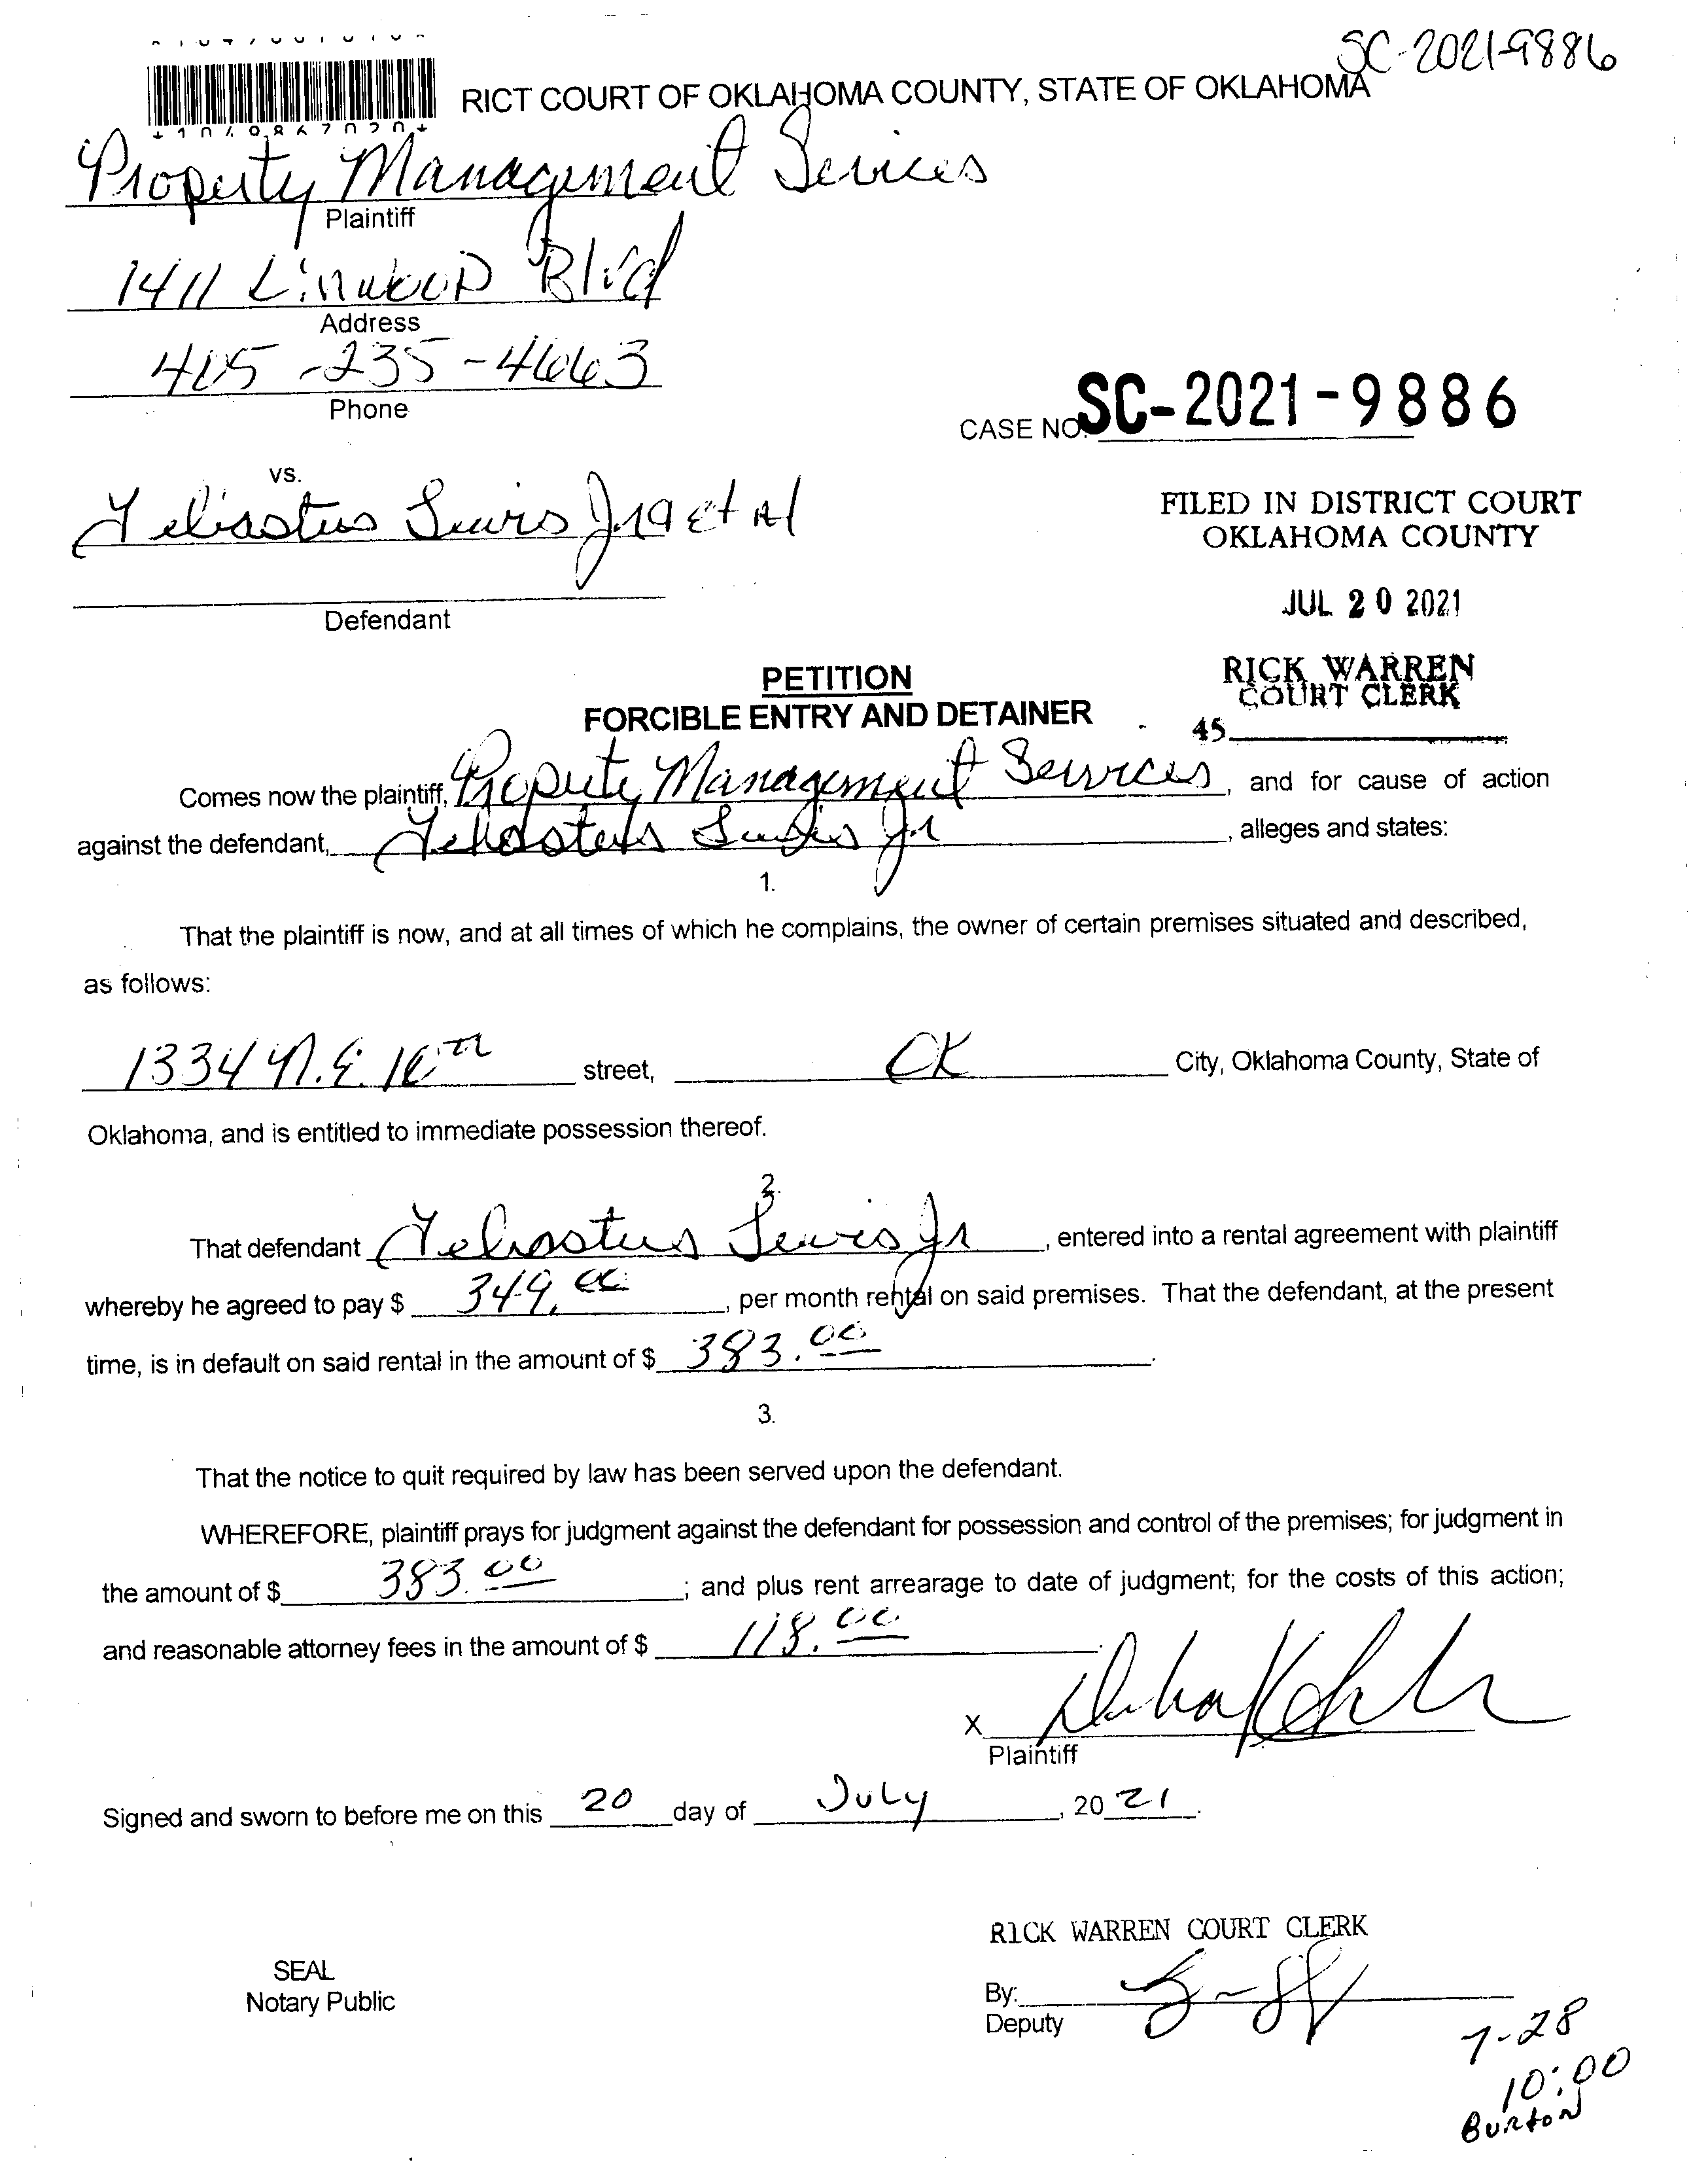 SC-2021-9886
RICT COURT OF OKLAHOMA COUNTY, STATE OF OKLAHOMA
Property Management Services
Plaintiff
1411 Linwood Blvd
Address
405-235-4663
Phone
CASE NO. SC-2021-9886
vs.
Lewis Jr et Al
FILED IN DISTRICT COURT
OKLAHOMA COUNTY
Defendant
JUL 20 2021
PETITION
RICK WARREN
COURT CLERK
FORCIBLE ENTRY AND DETAINER
45
Comes now the plaintiff, Property Management Services, and for cause of action
against the defendant, Lewis Jr, alleges and states:
1.
That the plaintiff is now, and at all times of which he complains, the owner of certain premises situated and described,
as follows:
1334 N.E. street, OK City, Oklahoma County, State of
Oklahoma, and is entitled to immediate possession thereof.
2.
That defendant Lewis Jr, entered into a rental agreement with plaintiff
whereby he agreed to pay $ 349.00, per month rental on said premises. That the defendant, at the present
time, is in default on said rental in the amount of $ 383.00.
3.
That the notice to quit required by law has been served upon the defendant.
WHEREFORE, plaintiff prays for judgment against the defendant for possession and control of the premises; for judgment in
the amount of $ 383.00; and plus rent arrearage to date of judgment; for the costs of this action;
and reasonable attorney fees in the amount of $ 118.00.
X
Plaintiff
Signed and sworn to before me on this 20 day of July, 20 21.
RICK WARREN COURT CLERK
SEAL
Notary Public
By:
Deputy
7-28
10:00
Burton